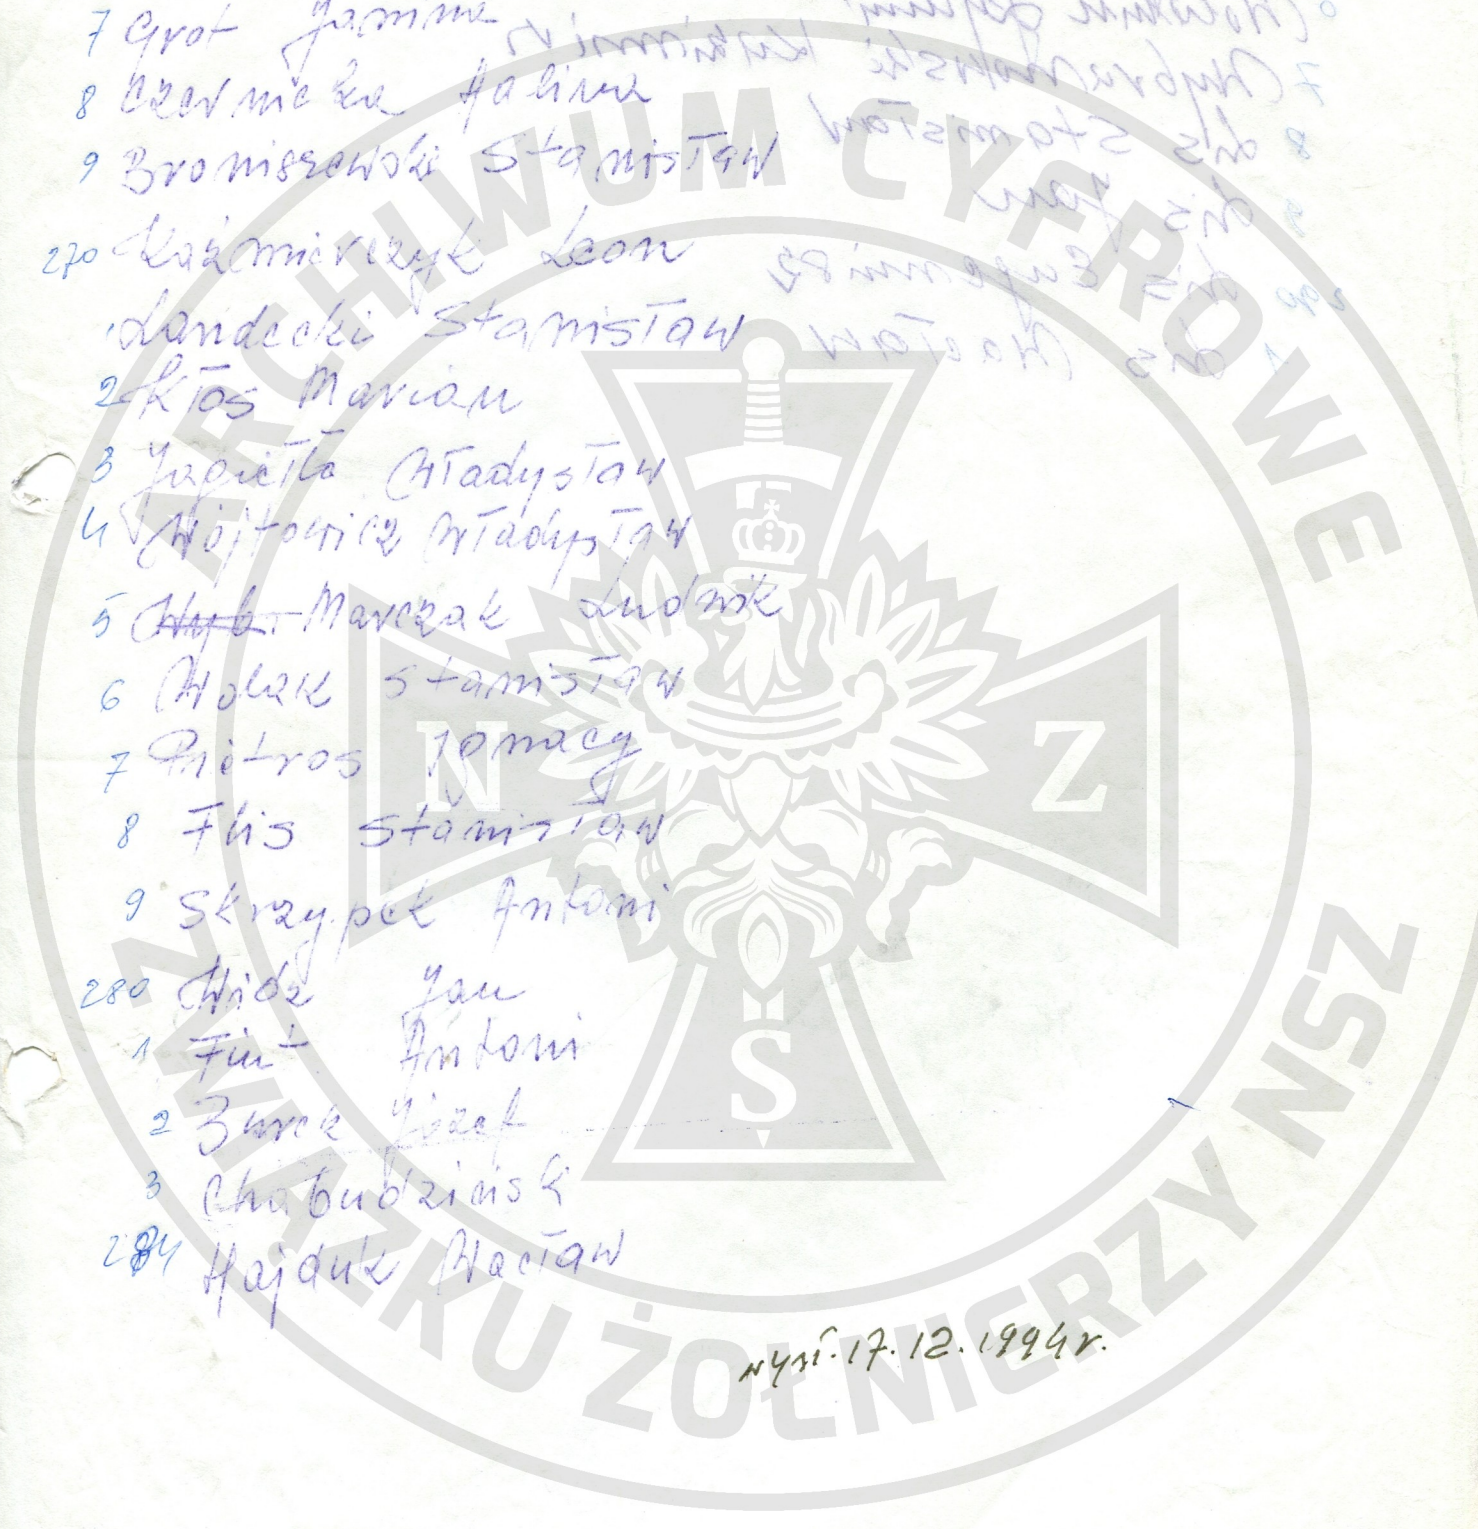 7 Grot Janina
8 Czernicka Halina
9 Broniszewski Stanisław
270 Kaźmierczyk Leon
1 Landecki Stanisław
2 Kłos Marian
3 Jagiełło Władysław
4 Wójtowicz Władysław
5 Wyb. Marczak Ludwik
6 Wolak Stanisław
7 Pietros Ignacy
8 Flis Stanisław
9 Skrzypek Antoni
280 Widz Jan
1 Fint Antoni
2 Burek Józef
3 Chabudziński
284 Hajduk Wacław
wył. 17.12.1994r.
ARCHIWUM CYFROWE
ZWIĄZKU ŻOŁNIERZY NSZ
N
S
Z